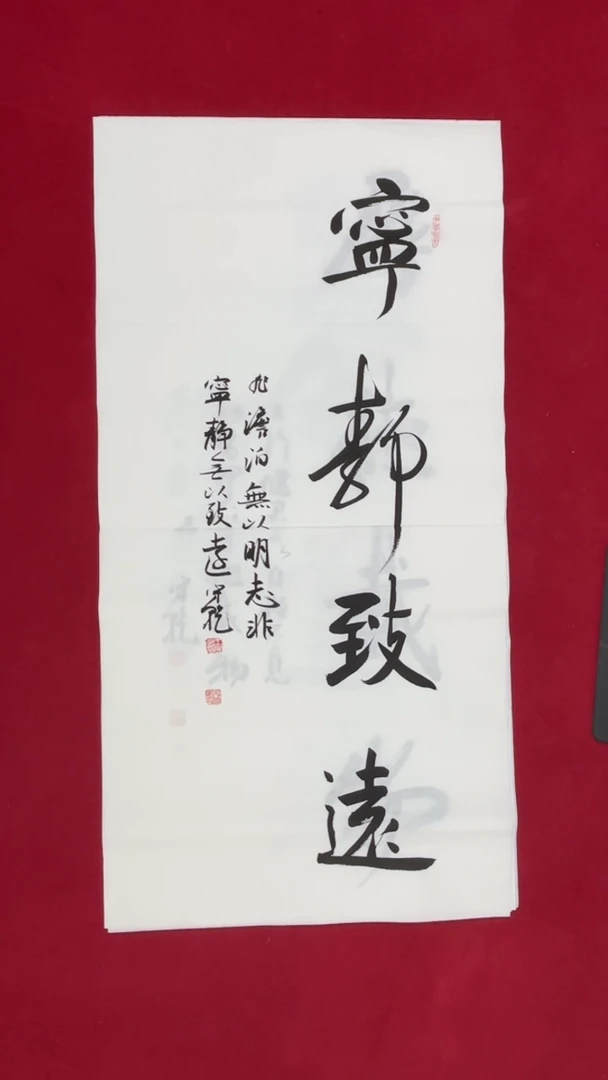 寧靜致遠
非澹泊無以明志非
寧靜無以致遠守乾